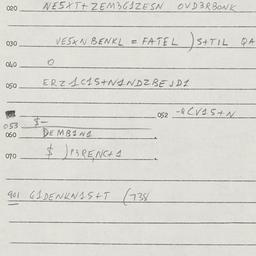 020 NE5XT+ZEM3G1ZESN OVD3RBONK
030 VESXNBENKL = FATEL )S+TIL QA
040 O
050 ERZ1C1S+N1NDZBEJD1
052 -4CV1S+N
053 $-
060 DEMB1N1
070 $ )P3PENC+1
901 G1DENKN1S+T (738